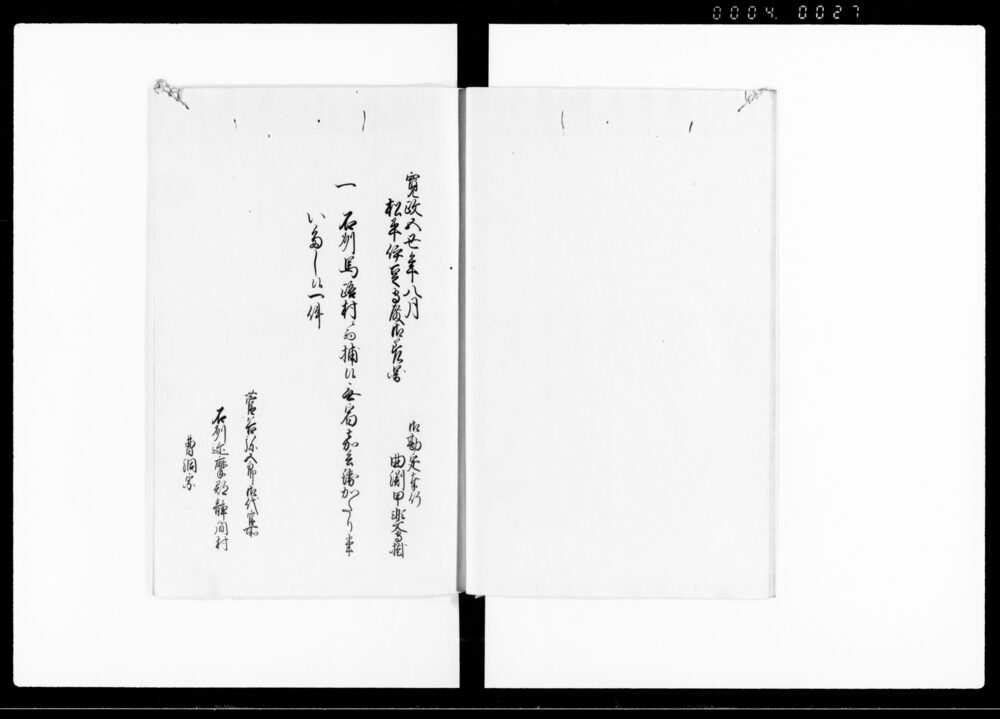 0004. 0027
寛政五丑年八月
松平伊豆守殿御差図
御勘定奉行
曲渕甲斐守掛
一 石州馬路村ニ而捕候無宿嘉兵衛かたり事
いたし候一件
菅谷弥五郎御代官所
石州迩摩郡静間村
曹洞宗